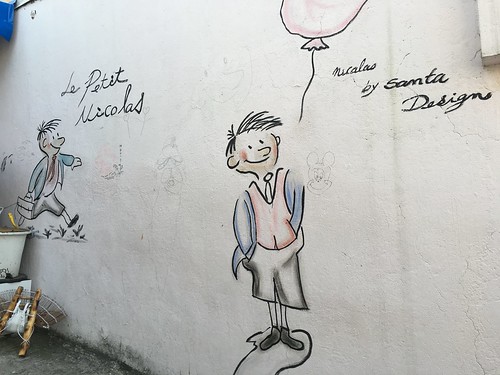 Le Petit
Nicolas
nicalas
by Santa
Design